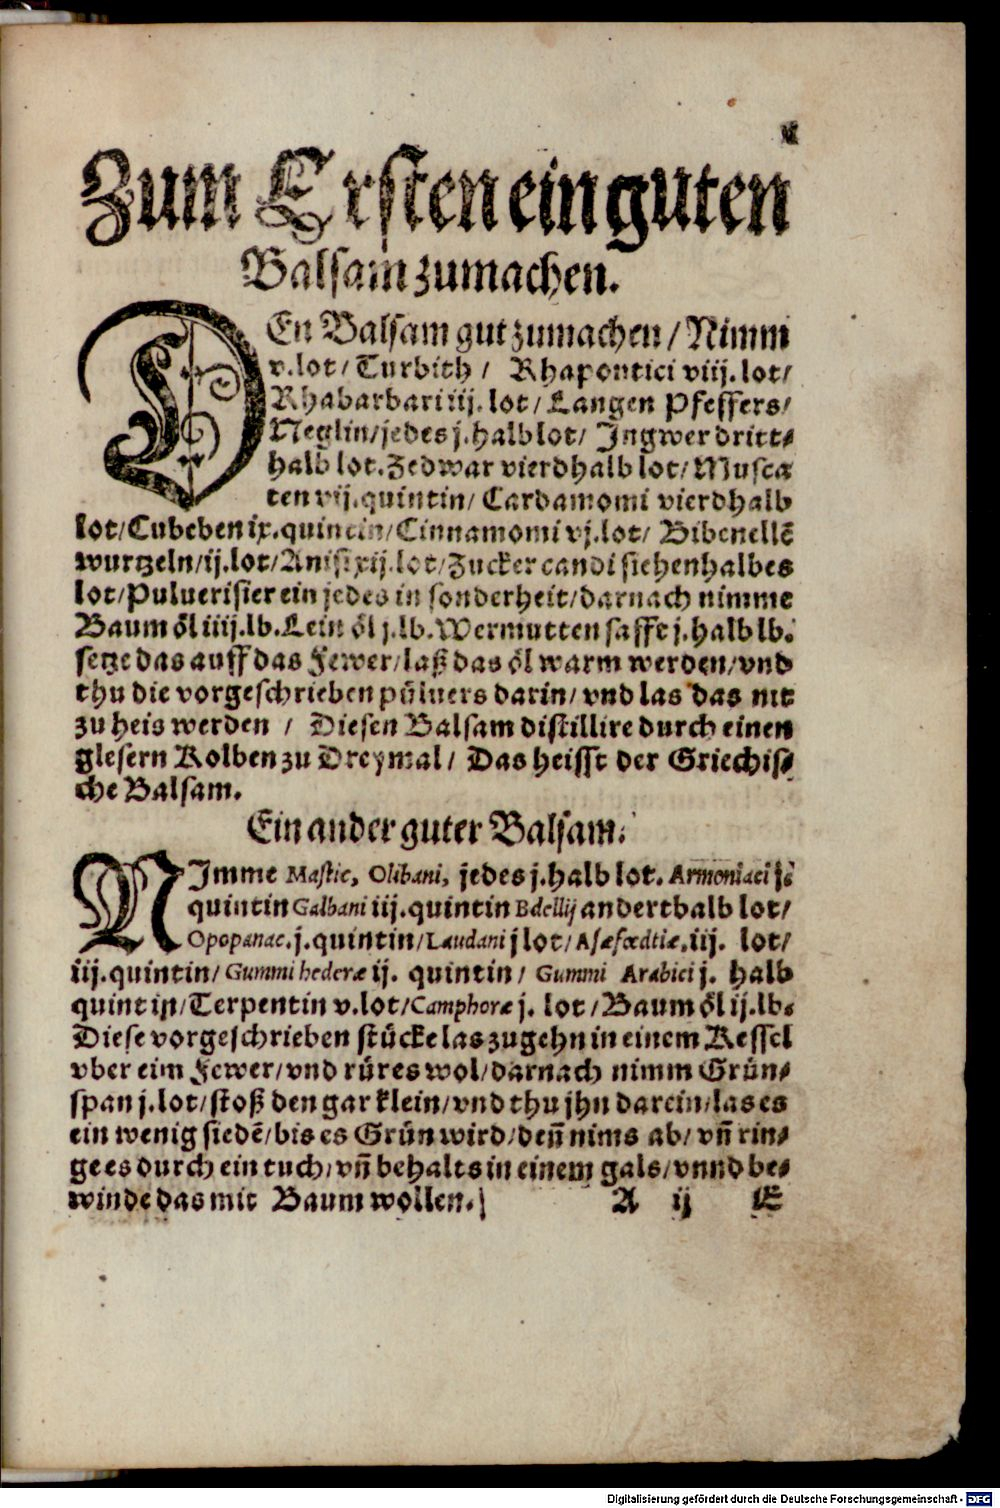 Zum Ersten ein guten
Balsam zumachen.
DEn Balsam gut zumachen / Nimm
v.lot / Turbith / Rhapontici viij. lot /
Rhabarbari iij. lot / Langen Pfeffers /
Neglin / jedes j. halb lot / Ingwer dritt⸗
halb lot. Zedwar vierdhalb lot / Musca
ten vij. quintin / Cardamomi vierdhalb
lot / Cubeben ix. quintin / Cinnamomi vj. lot / Bibenellē
wurtzeln / ij. lot / Anisi xij. lot / Zucker candi siehenhalbes
lot / Puluerisier ein jedes in sonderheit / darnach nimme
Baum öl iiij. lb. Lein öl j. lb. Wermutten safft j. halb lb.
setze das auff das Fewer / laß das öl warm werden / vnd
thu die vorgeschrieben pülners darin / vnd las das nit
zu heis werden / Diesen Balsam distillire durch einen
glesern Kolben zu Dreymal / Das heisst der Griechis⸗
che Balsam.
Ein ander guter Balsam.
NImme Mastic, Olibani, jedes j. halb lot. Armoniaci
quintin Galbani iij. quintin Bdellij anderthalb lot /
Opopanac. j. quintin / Laudani j lot / Asæfœdtiæ, iij. lot /
iij. quintin / Gummi hederæ ij. quintin / Gummi Arabici j. halb
quintin / Terpentin v. lot / Camphoræ j. lot / Baum öl ij. lb.
Diese vorgeschrieben stücke las zugehn in einem Kessel
vber eim Fewer / vnd rüres wol / darnach nimm Grün⸗
span j. lot / stoß den gar klein / vnd thu jhn darein / las es
ein wenig siedē / bis es Grün wird / deñ nims ab / vñ rin⸗
ge es durch ein tuch / vñ behalts in einem gals / vnnd be⸗
winde das mit Baum wollen. A ij E
Digitalisierung gefördert durch die Deutsche Forschungsgemeinschaft - DFG